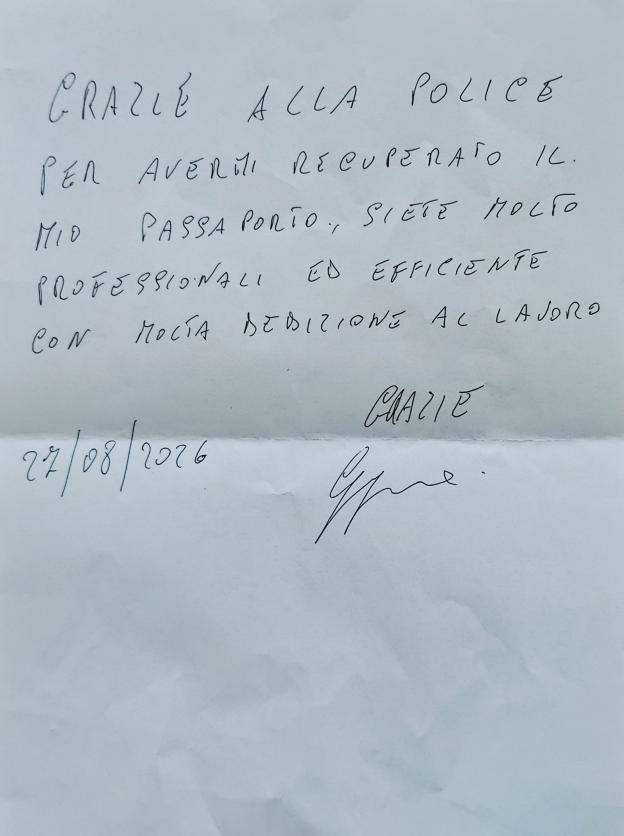 GRAZIE ALLA POLICE
PER AVERMI RECUPERATO IL.
MIO PASSAPORTO., SIETE MOLTO
PROFESSIONALI ED EFFICIENTE
CON MOLTA DEDIZIONE AL LAVORO
GRAZIE
27/08/2026